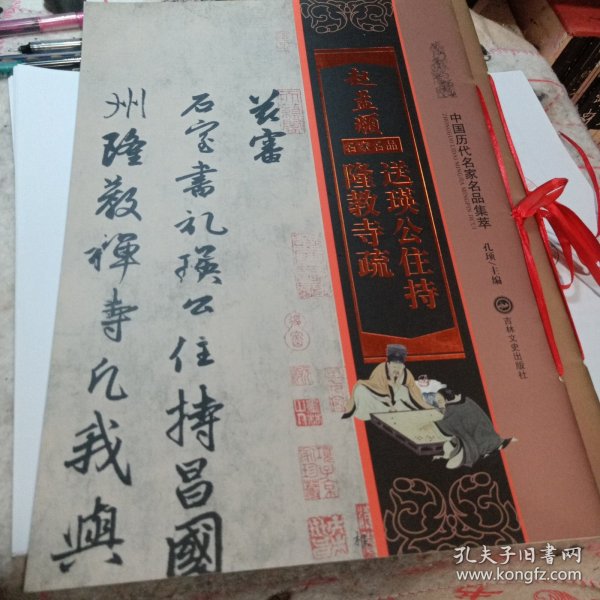 兹審
石室書記瑛公住持昌國
州隆教禪寺凡我與
赵孟頫
名家名品
送瑛公住持
隆教寺疏
中国历代名家名品集萃
ZHONGGUO LIDAI MINGJIA MINGPIN JICUI
孔瑛/主编
吉林文史出版社
孔夫子旧书网
www.kongfz.com